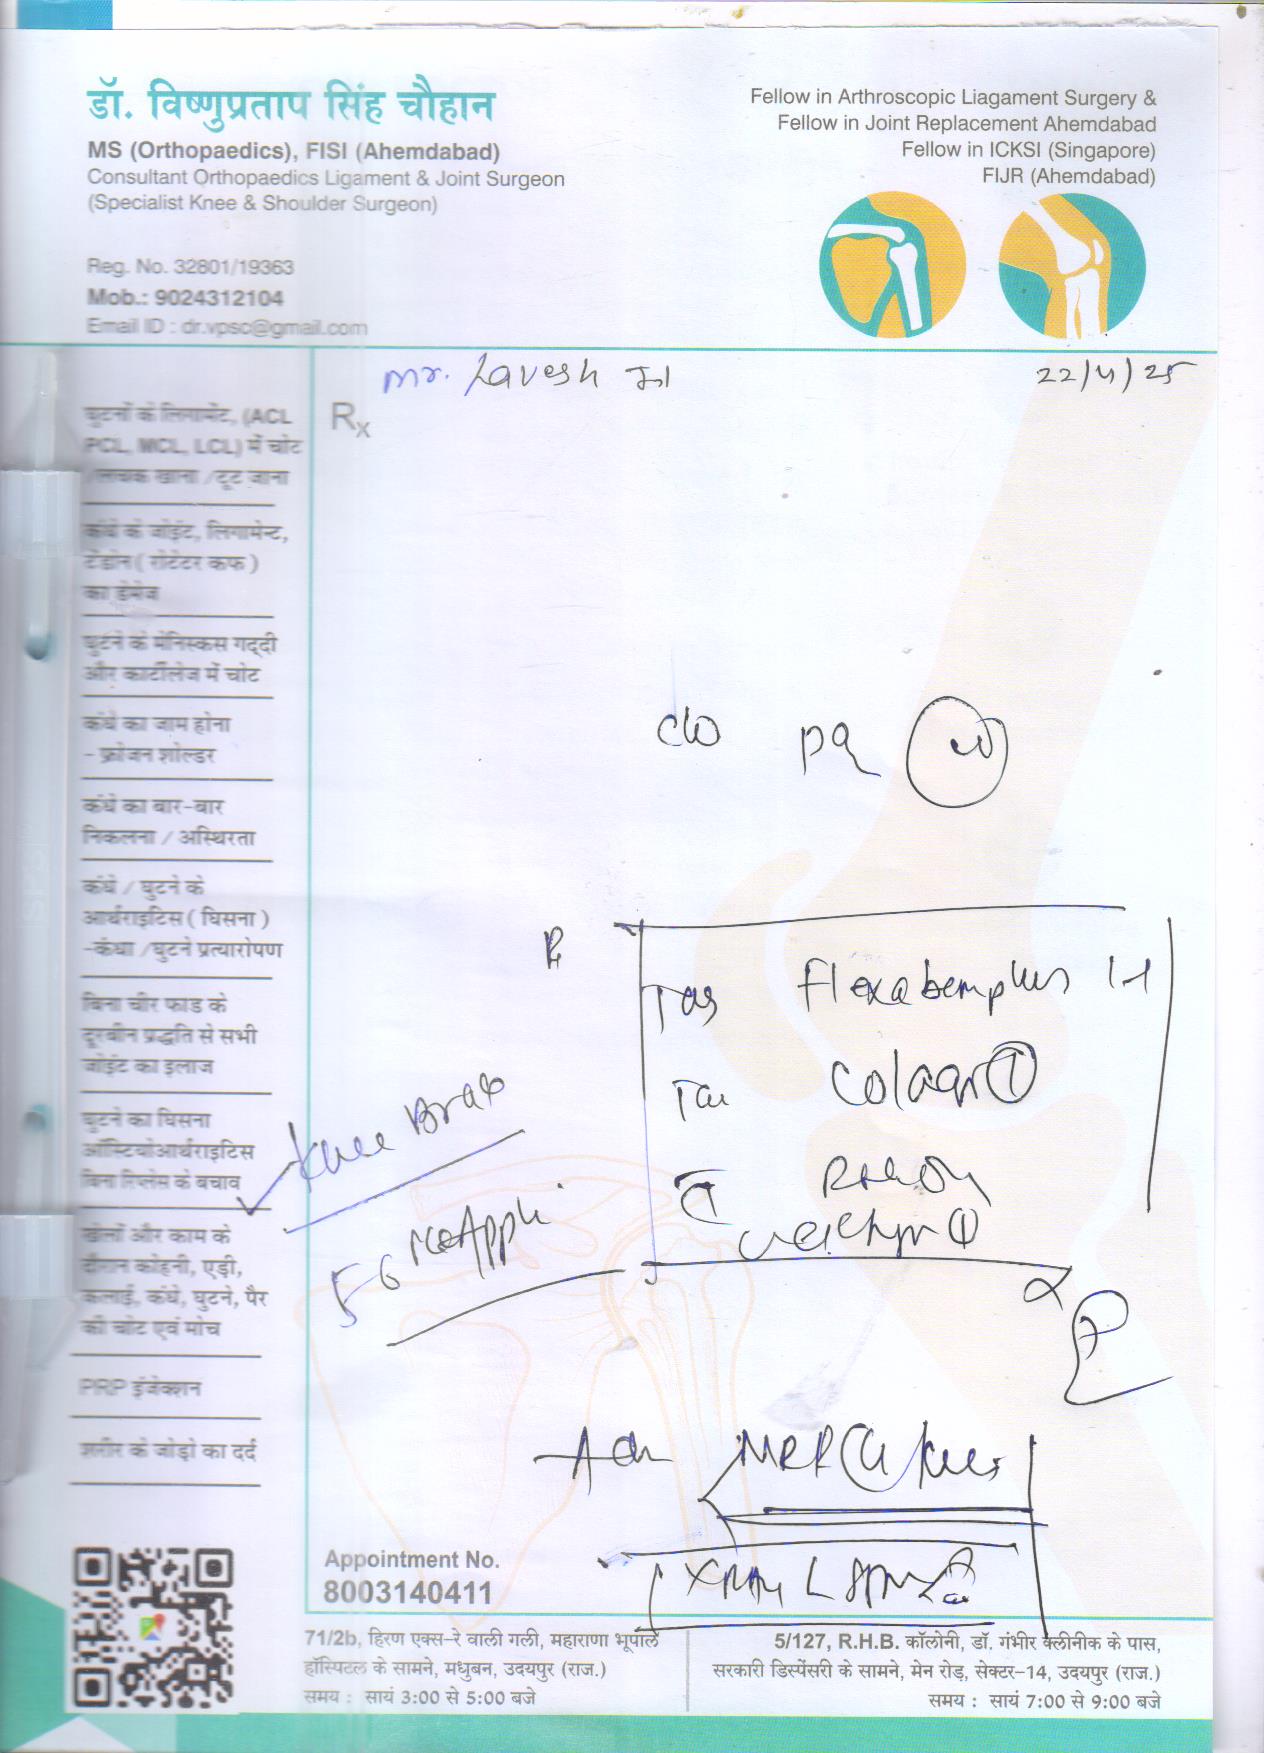 डॉ. विष्णुप्रताप सिंह चौहान
MS (Orthopaedics), FISI (Ahemdabad)
Consultant Orthopaedics Ligament & Joint Surgeon
(Specialist Knee & Shoulder Surgeon)
Reg. No. 32801/19363
Mob.: 9024312104
Email ID : dr.vpsc@gmail.com
Fellow in Arthroscopic Liagament Surgery &
Fellow in Joint Replacement Ahemdabad
Fellow in ICKSI (Singapore)
FIJR (Ahemdabad)
Mr. Lavesh
22/4/25
Rx
घुटनों के लिगामेंट, (ACL
PCL, MCL, LCL) में चोट
/लचक खाना /टूट जाना
कंधे के जोइंट, लिगामेन्ट,
टेंडोन ( रोटेटर कफ )
का डेमेज
घुटने के मेनिस्कस गद्दी
और कार्टीलेज में चोट
कंधे का जाम होना
- फ्रोजन शोल्डर
कंधे का बार-बार
निकलना / अस्थिरता
कंधे / घुटने के
आर्थराइटिस ( घिसना )
-कंधा /घुटने प्रत्यारोपण
बिना चीर फाड के
दूरबीन प्रद्धति से सभी
जोइंट का इलाज
घुटने का घिसना
ऑस्टियोआर्थराइटिस
बिना रिप्लेस के बचाव
खेलों और काम के
दौरान कोहनी, एड़ी,
कलाई, कंधे, घुटने, पैर
की चोट एवं मोच
PRP इंजेक्शन
शरीर के जोड़ो का दर्द
Flexabemplus
Knee
Appointment No.
8003140411
71/2b, हिरण एक्स-रे वाली गली, महाराणा भूपाल
हॉस्पिटल के सामने, मधुबन, उदयपुर (राज.)
समय : सायं 3:00 से 5:00 बजे
5/127, R.H.B. कॉलोनी, डॉ. गंभीर क्लीनीक के पास,
सरकारी डिस्पेंसरी के सामने, मेन रोड़, सेक्टर-14, उदयपुर (राज.)
समय : सायं 7:00 से 9:00 बजे